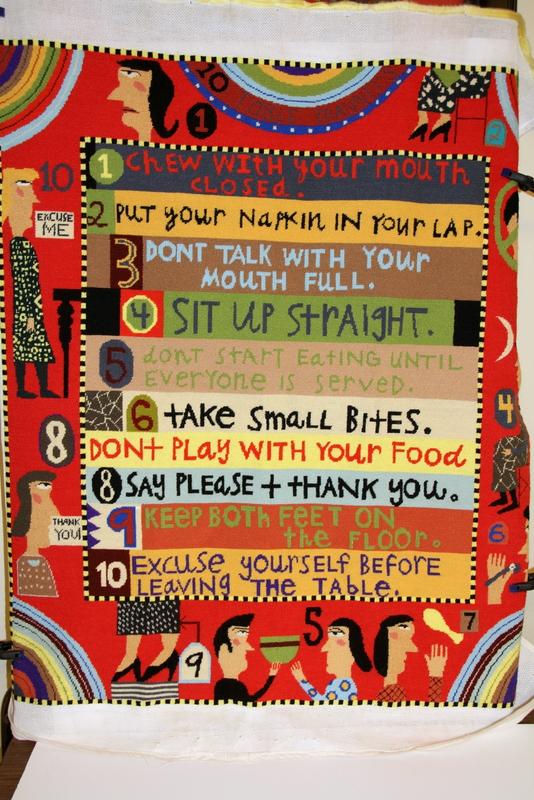 10
1
2
10
EXCUSE
ME
1 CHEW WITH your mouth
CLOSED.
2 PUT your NAPKIN IN Your LAP.
3 DONT TALK WITH Your
MOUTH FULL.
4 SIT UP STRAIGHT.
5 dONT START EATING UNTIL
EVERYONE IS SERVED.
6 TAKE SMALL BITES.
DONT PLAY WITH YOUR FOOd
8 SAY PLEASE + THANK YOU.
9 KEEP BOTH FEET ON
the FLOOR.
10 EXCUSE yOURSELF BEFORE
LEAVING THE TABLE.
4
8
THANK
YOU
6
9
5
7